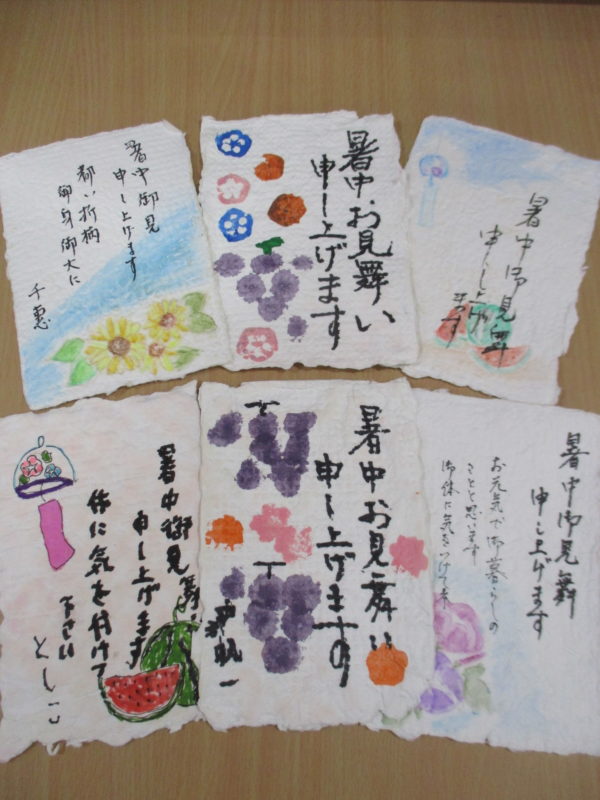 暑中御見
申し上げます
折柄
御身御大に
千恵
暑中お見舞い
申し上げます
暑中御見舞
申し上げ
ます
暑中御見舞
申し上げます
体に気を付けて
下さい
としこ
暑中お見舞い
申し上げます
暑中御見舞
申し上げます
お元気で御暮らしの
ことと思います
御体に気をつけて